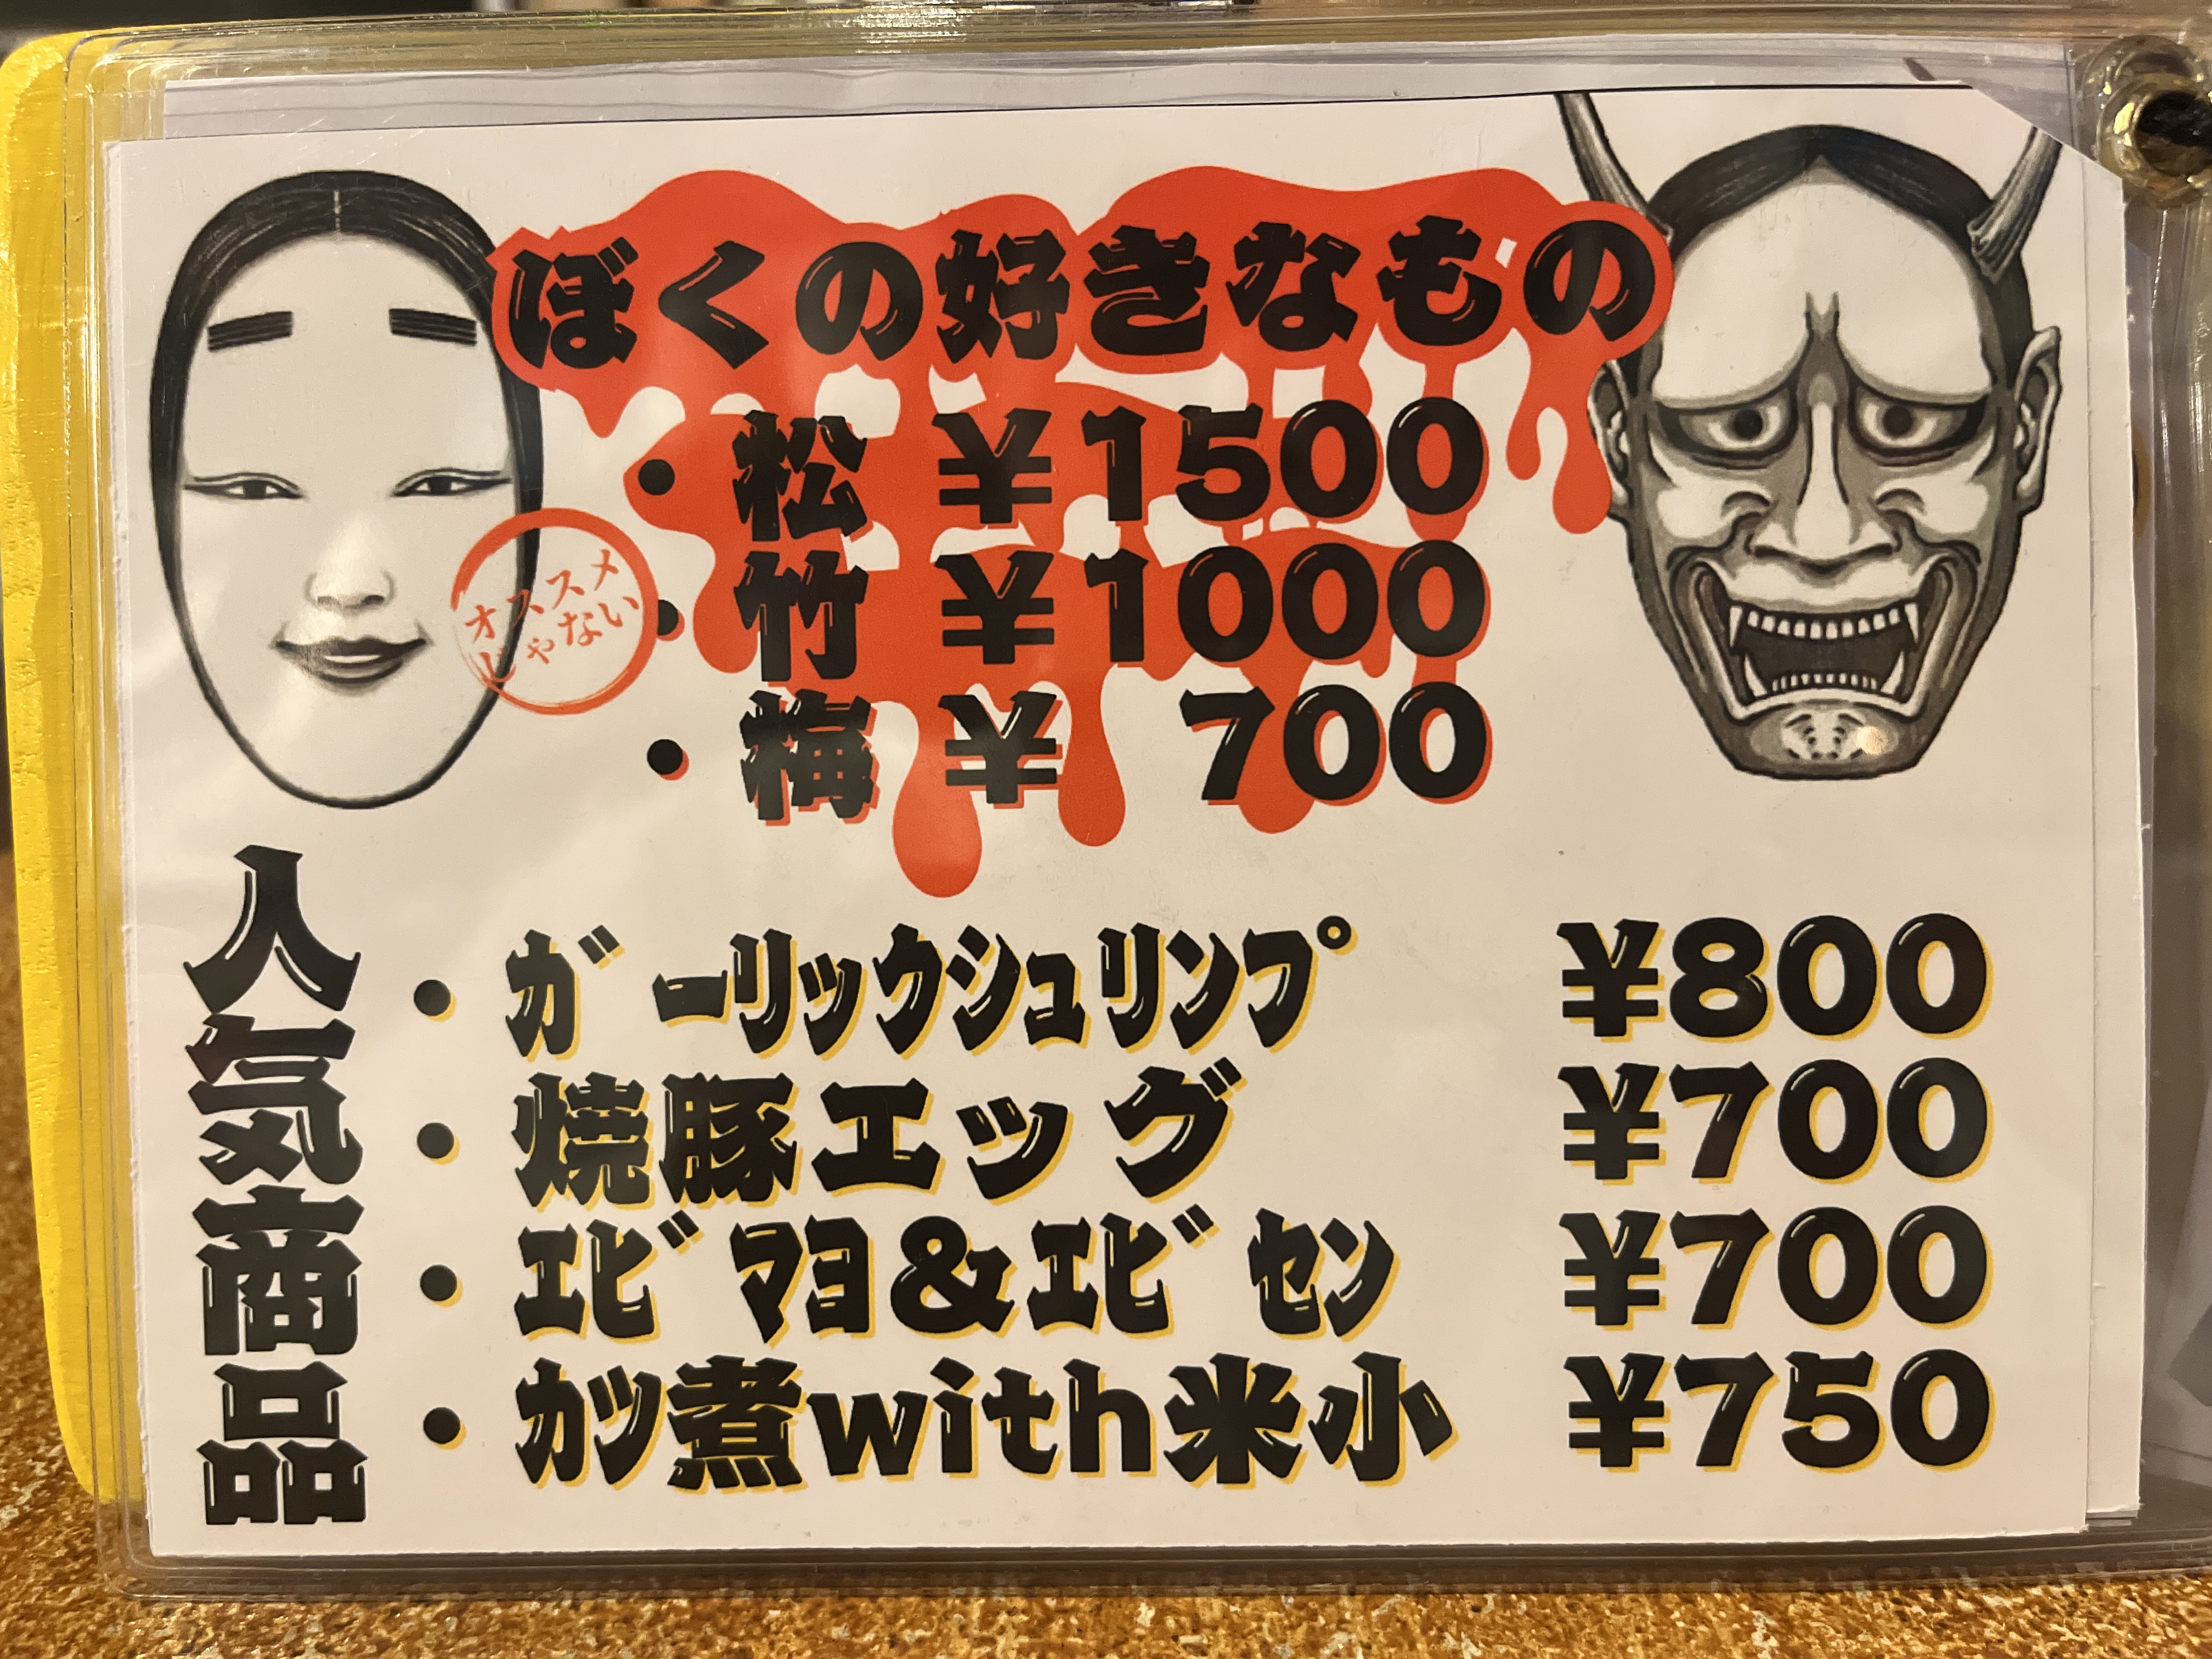 ぼくの好きなもの
・松 ¥1500
オススメ
じゃない
・竹 ¥1000
・梅 ¥ 700
人気商品
・ガーリックシュリンプ ¥800
・焼豚エッグ ¥700
・エビマヨ&エビセン ¥700
・カツ煮with米小 ¥750